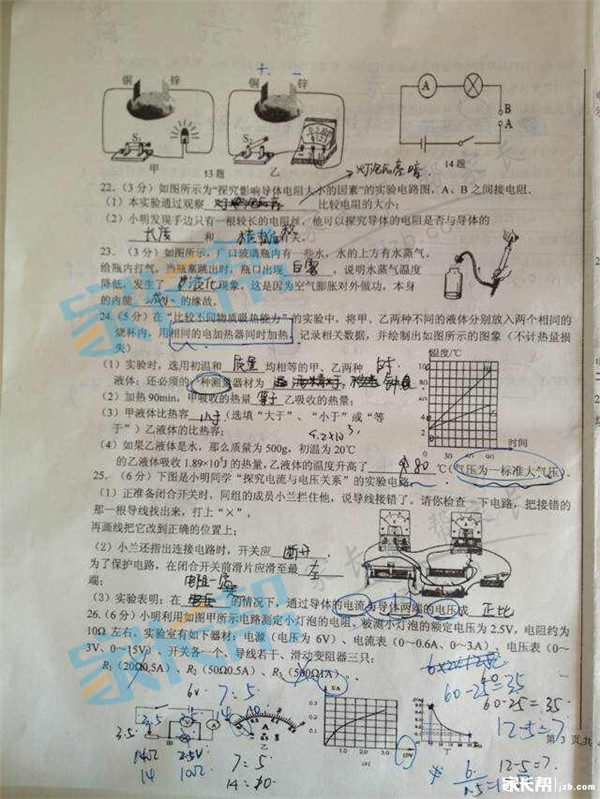 铜 锌 铜 + - 锌
A B A
S S
甲 乙
13题 14题
22.(3分)如图所示为“探究影响导体电阻大小的因素”的实验电路图,A、B之间接电阻.
(1)本实验通过观察 比较电阻的大小;
(2)小明发现手边只有一根较长的电阻丝,他可以探究导体的电阻是否与导体的
长度 和 横截面积
23.(3分)如图所示,广口玻璃瓶内有一些水,水的上方有水蒸气,
给瓶内打气,当瓶塞跳出时,瓶口出现 白雾 ,说明水蒸气温度
降低,发生了 液化 现象,这是因为空气膨胀对外做功,本身
的内能 减小 的缘故.
24.(5分)在“比较不同物质吸热能力”的实验中,将甲、乙两种不同的液体分别放入两个相同的
烧杯内,用相同的电加热器同时加热,记录相关数据,并绘制出如图所示的图象(不计热量损
失)
(1)实验时,选用初温和 质量 均相等的甲、乙两种
液体;还必须的一种测量器材为
(2)加热90min,甲吸收的热量 等于 乙吸收的热量;
(3)甲液体比热容 小于 (选填“大于”、“小于”或“等
于”)乙液体的比热容;
(4)如果乙液体是水,那么质量为500g,初温为20℃
的乙液体吸收1.89×10⁵J的热量,乙液体的温度升高了 80 ℃(气压为一标准大气压).
温度/℃
0 30 60 90
时间
25.(6分)下图是小明同学“探究电流与电压关系”的实验电路.
(1)正准备闭合开关时,同组的成员小兰拦住他,说导线接错了。请你检查一下电路,把接错的
那一根导线找出来,打上“×”,
再画线把它改到正确的位置上;
(2)小兰还指出连接电路时,开关应 断开 ,
为了保护电路,在闭合开关前滑片应滑至最 左
端;
(3)实验表明:在 的情况下,通过导体的电流与导体两端的电压成 正比
26.(6分)小明利用如图甲所示电路测定小灯泡的电阻,被测小灯泡的额定电压为2.5V,电阻约为
10Ω左右,实验室有如下器材:电源(电压为6V)、电流表(0~0.6A、0~3A)、电压表(0~
3V、0~15V)、开关各一个、导线若干、滑动变阻器三只:
R₁(20Ω0.5A)、R₂(50Ω0.5A)、R₃(500Ω1A)
6V 7:5
60-25=35
60-25=35
12-5=7
3.5 14Ω 2.5V
14 10Ω
7=5
14=10
12-5=7
甲 乙 丙 丁
0.3
0.2
0.1
1.0 2.0 3.0
第3页,共
家长帮 jzb.com